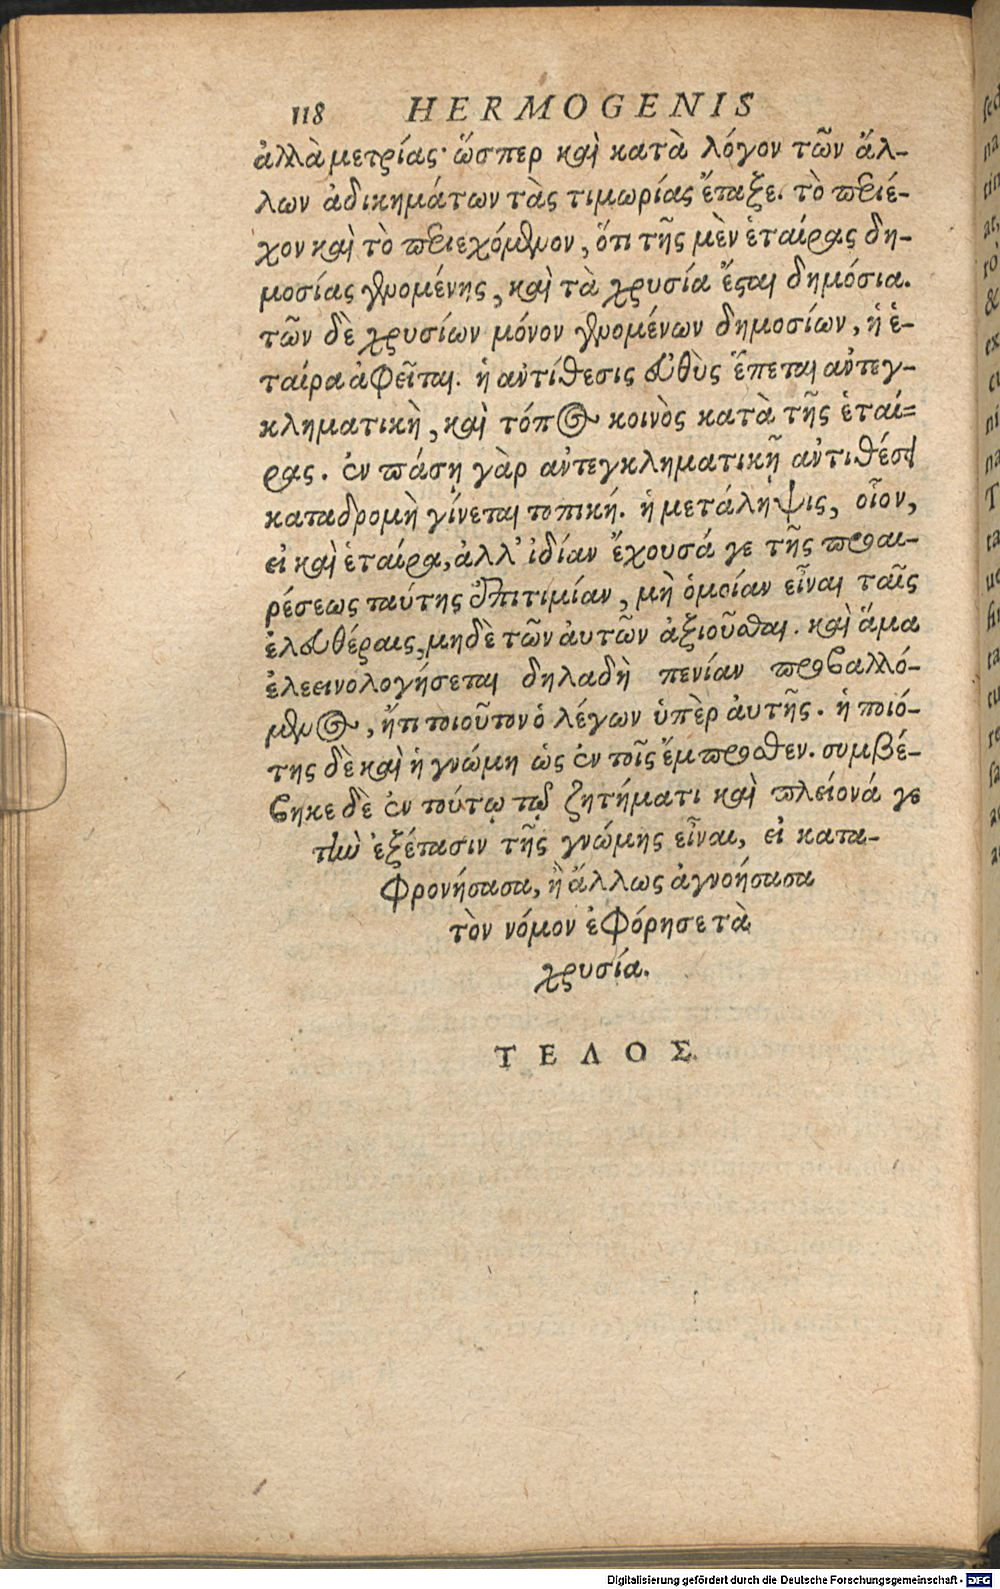 118 HERMOGENIS
ἀλλὰ μετρίας· ὥσπερ καὶ κατὰ λόγον τῶν ἄλ-
λων ἀδικημάτων τὰς τιμωρίας ἔταξε. τὸ περιέ-
χον καὶ τὸ περιεχόμενον, ὅτι τῆς μὲν ἑταίρας δη-
μοσίας γενομένης, καὶ τὰ χρυσία ἔσται δημόσια.
τῶν δὲ χρυσίων μόνον γενομένων δημοσίων, ἡ ἑ-
ταίρα ἀφεῖται. ἡ αντίθεσις εὐθὺς ἕπεται αντεγ-
κληματικὴ, καὶ τόπος κοινὸς κατὰ τῆς ἑταί-
ρας. ἐν πάσῃ γὰρ αντεγκληματικῇ αντιθέσει
καταδρομὴ γίνεται τοπική. ἡ μετάληψις, οἷον,
εἰ καὶ ἑταίρα, ἀλλ' ἰδίαν ἔχουσά γε τῆς προαι-
ρέσεως ταύτης ἐπιτιμίαν, μὴ ὁμοίαν εἶναι ταῖς
ἐλευθέραις, μηδὲ τῶν ἀυτῶν ἀξιοῦσθαι. καὶ ἅμα
ἐλεεινολογήσεται δηλαδὴ πενίαν προβαλλό-
μενος, ἤτι τοιοῦτον ὁ λέγων ὑπὲρ ἀυτῆς. ἡ ποιό-
της δὲ καὶ ἡ γνώμη ὡς ἐν τοῖς ἔμπροσθεν. συμβέ-
βηκε δὲ ἐν τούτῳ τῷ ζητήματι καὶ πλείονά γε
τὴν ἐξέτασιν τῆς γνώμης εἶναι, εἰ κατα-
φρονήσασα, ἢ ἄλλως ἀγνοήσασα
τὸν νόμον ἐφόρησε τὰ
χρυσία.
ΤΕΛΟΣ
Digitalisierung gefördert durch die Deutsche Forschungsgemeinschaft - DFG